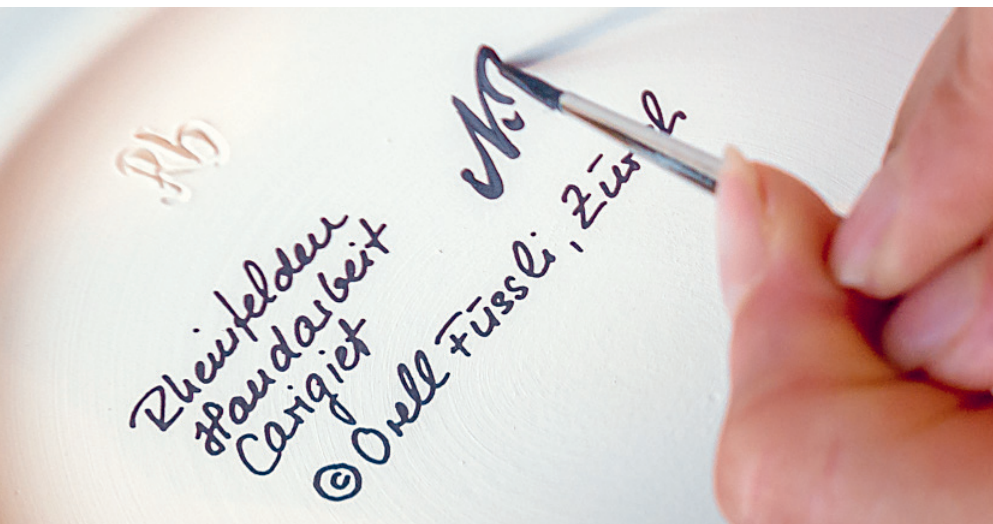 Rh
Rheinfelden
Handarbeit
Carigiet
© Orell Füssli, Zürich